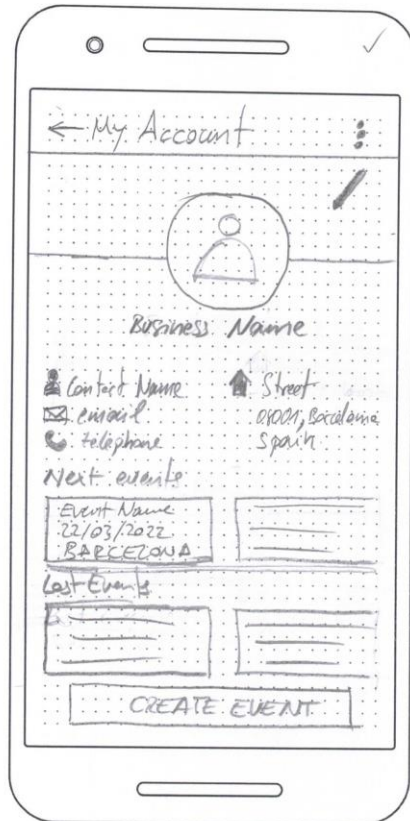 ← My Account
Business Name
Contact Name
email
telephone
Street
08001, Barcelona
Spain
Next events
Event Name
22/03/2022
BARCELONA
Last Events
CREATE EVENT